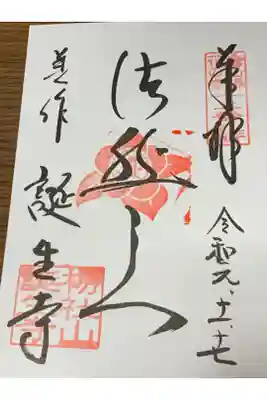 奉拝
令和元、十一、十七
法然上人
美作
誕生寺